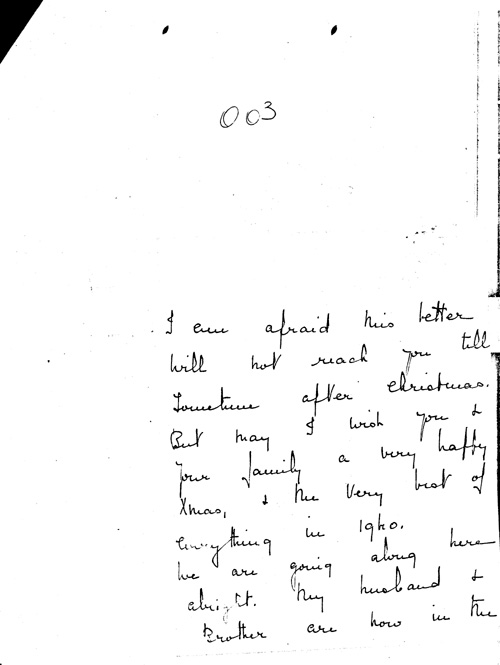 003
I am afraid this letter
will not reach you till
Sometime after Christmas.
But may I wish you &
your family a very happy
Xmas, & the very best of
everything in 1940.
We are going along here
alright. My husband &
Brother are now in the